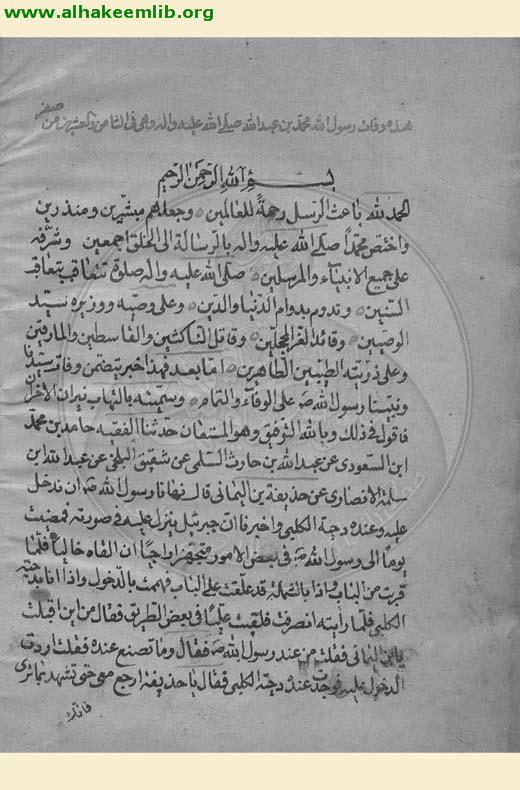 www.alhakeemlib.org
هذه وفات رسول الله محمد بن عبد الله صلى الله عليه واله وهى فى الثامن والعشرين من صفر
بسم الله الرحمن الرحيم
الحمد لله باعث الرسل رحمة للعالمين وجعلهم مبشرين ومنذرين
واختص محمدا صلى الله عليه واله بالرسالة الى الخلق اجمعين وشرفه
على جميع الانبياء والمرسلين صلى الله عليه واله صلوة تتعاقب بتعاقب
السنين وتدوم بدوام الدنيا والدين وعلى وصيه ووزيره سيد
الوصيين وقائد الغر المحجلين وقاتل الناكثين والقاسطين والمارقين
وعلى ذريته الطيبين الطاهرين اما بعد فهذا خبر يتضمن وفات سيدنا
ونبينا رسول الله ص على الوفاء والتمام وسميته بالتهاب نيران الاحزان
فاقول فى ذلك وبالله التوفيق وهو المستعان حدثنا الفقيه حامد بن محمد
ابن السعودى عن عبد الله بن حارث السلمى عن شقيق البلخى عن عبد الله ابن
سلمة الانصارى عن حذيفة بن اليمانى قال نهانا رسول الله ص ان ندخل
عليه وعنده دحية الكلبى واخبرنا ان جبرئيل ينزل عليه فى صورته فمضيت
يوما الى رسول الله ص فى بعض الامور متهجرا راجيا ان القاه خاليا فلما
قربت من الباب واذا بالشملة قد علقت على الباب فهممت بالدخول واذا انا بدحية
الكلبى فلما رايته انصرفت فلقيت عليا فى بعض الطريق فقال من اين اقبلت
يابن اليمانى فقلت من عند رسول الله ص فقال وما تصنع عنده فقلت اردت
الدخول عليه فوجدت عنده دحية الكلبى فقال يا حذيفة ارجع معى حتى تشهد بما ترى